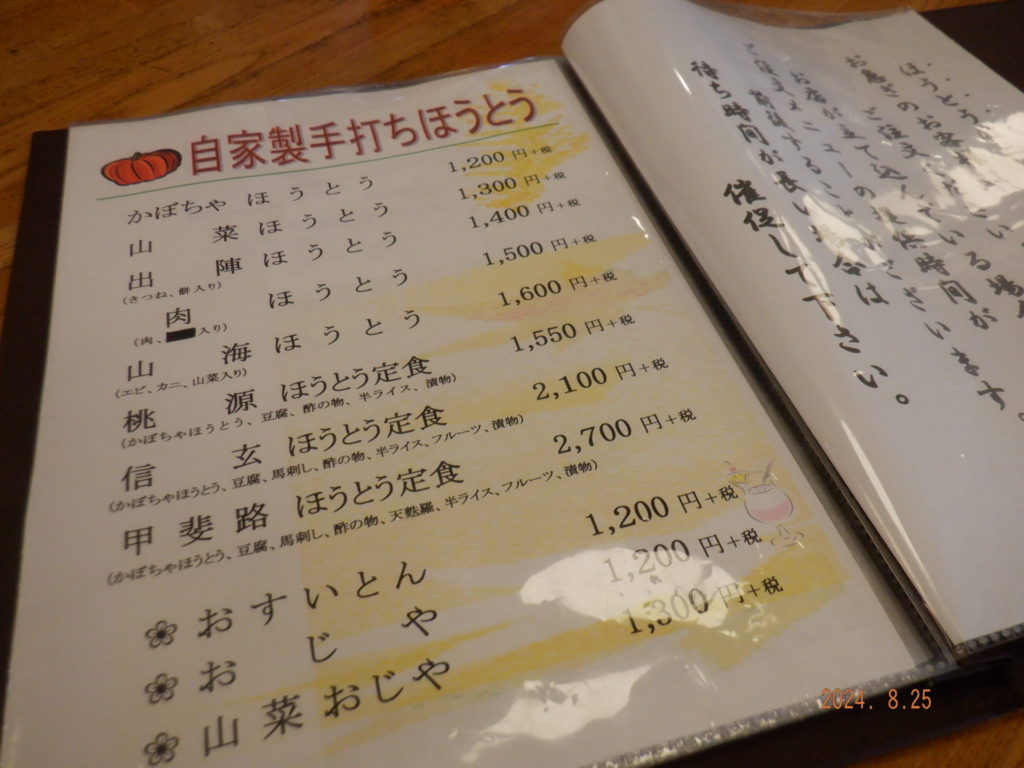 自家製手打ちほうとう
かぼちゃ ほうとう 1,200 円+税
山菜ほうとう 1,300 円+税
出陣ほうとう 1,400 円+税
(きつね、餅入り)
肉ほうとう 1,500 円+税
(肉、入り)
山海ほうとう 1,600 円+税
(エビ、カニ、山菜入り)
桃源 ほうとう定食 1,550 円+税
(かぼちゃほうとう、豆腐、酢の物、半ライス、漬物)
信玄 ほうとう定食 2,100 円+税
(かぼちゃほうとう、豆腐、馬刺し、酢の物、半ライス、フルーツ、漬物)
甲斐路 ほうとう定食 2,700 円+税
(かぼちゃほうとう、豆腐、馬刺し、酢の物、天麩羅、半ライス、フルーツ、漬物)
おすいとん 1,200 円+税
おじや 1,200 円+税
山菜おじや 1,300 円+税
ほうとう
お急ぎのお客
お店が立て込んで
待ち時間が長い場合は
催促して下さい。
2024. 8.25